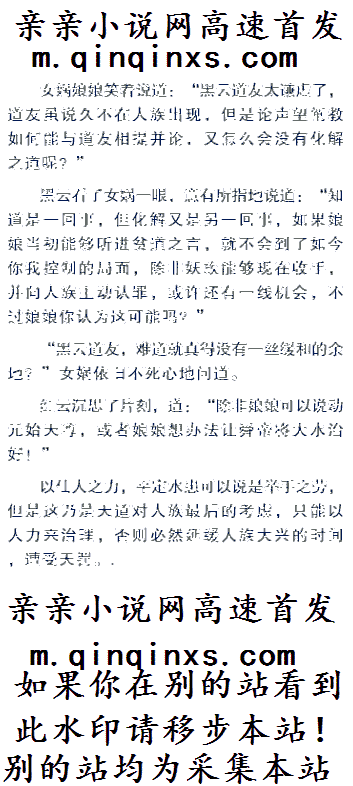 亲亲小说网高速首发
m.qinqinxs.com
女娲娘娘笑着说道：“黑云道友太谦虚了，
道友虽说久不在人族出现，但是论声望阐教
如何能与道友相提并论，又怎么会没有化解
之道呢？”
黑云看了女娲一眼，意有所指地说道：“知
道是一回事，但化解又是另一回事，如果娘
娘当初能够听进贫道之言，就不会到了如今
你我控制的局面，除非妖族能够现在收手，
并向人族主动认罪，或许还有一线机会，不
过娘娘你认为这可能吗？”
“黑云道友，难道就真得没有一丝缓和的余
地？”女娲依旧不死心地问道。
红云沉思了片刻，道：“除非娘娘可以说动
元始天尊，或者娘娘想办法让舜帝将大水治
好！”
以仙人之力，平定水患可以说是举手之劳，
但是这乃是天道对人族最后的考虑，只能以
人力来治理，否则必然延缓人族大兴的时间
，遭受天罚。.
亲亲小说网高速首发
m.qinqinxs.com
如果你在别的站看到
此水印请移步本站！
别的站均为采集本站